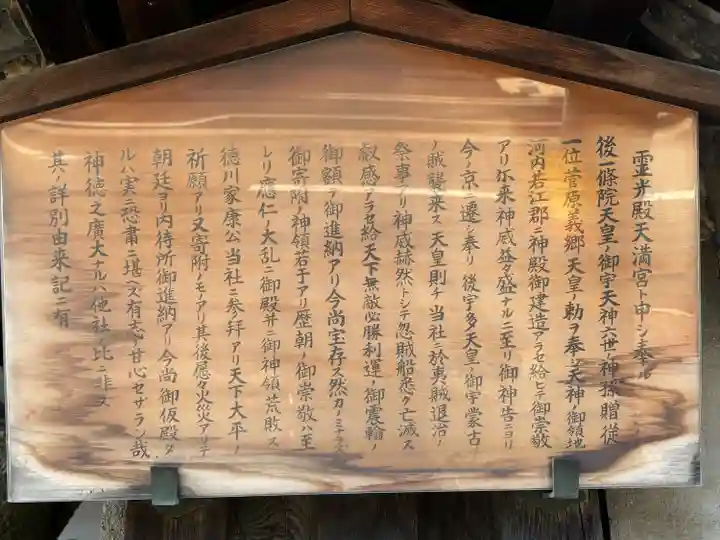 霊光殿天満宮ト申シ奉ル
後一條院天皇ノ御宇天神六世ノ神孫贈従
一位菅原義郷天皇ノ勅ヲ奉シ天神ノ御領地
河内若江郡ニ神殿御建造アラセ給ヒテ御崇敬
アリ尓来神威益々盛ナルニ至リ御神告ニヨリ
今ノ京ニ遷シ奉リ後宇多天皇ノ御宇蒙古
ノ賊襲来ス天皇則チ当社ニ於夷賊退治ノ
祭事アリ神威赫然トシテ忽賊船悉ク亡滅ス
叡感アラセ給天下無敵必勝利運ノ御震翰ノ
御額ヲ御進納アリ今尚宝存ス然カノミナラズ
御寄附ノ神領若干アリ歴朝ノ御崇敬ハ至
レリ應仁ノ大乱ニ御殿并ニ御神領荒敗ス
徳川家康公当社ニ参拜アリ天下大平ノ
祈願アリ又寄附ノモノアリ其後屡々火災アリテ
朝廷ヨリ内待所御進納アリ今尚御仮殿タ
ルハ実ニ恐粛ニ堪ヘズ有志ノ甘心セザラン哉
神徳之廣大ナルハ他社ノ比ニ非ス
其ノ詳別由来記ニ有